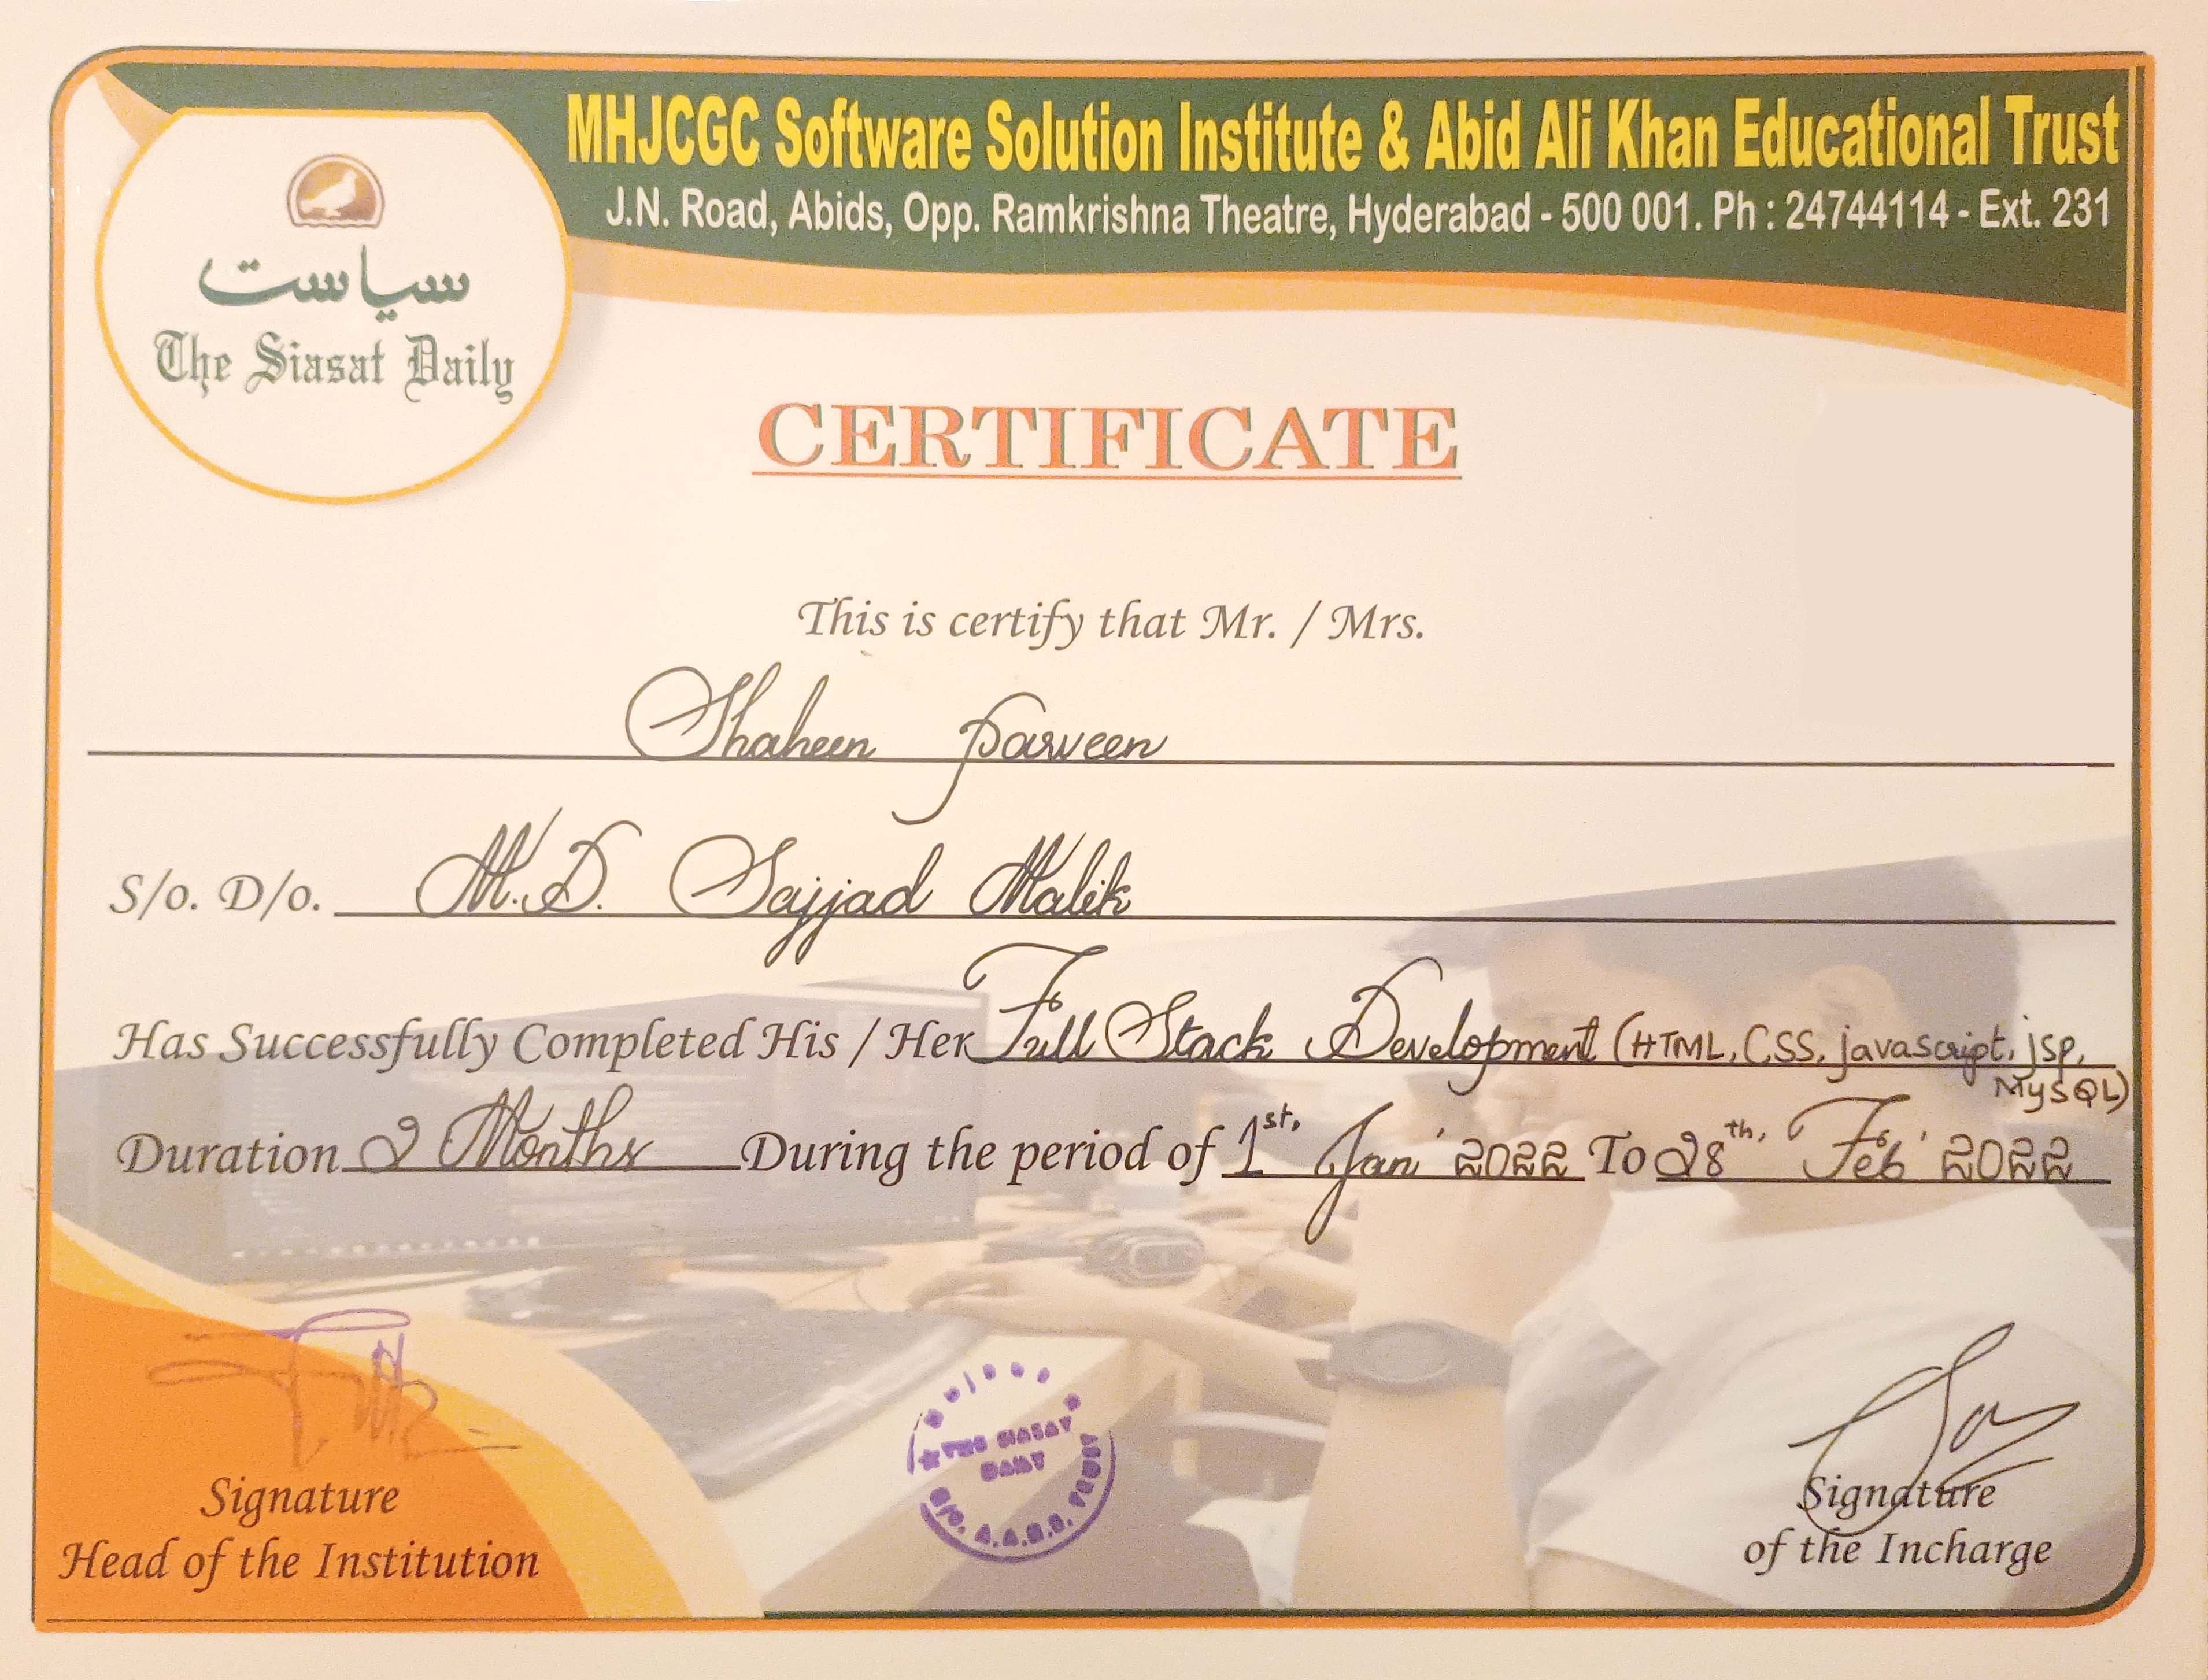 MHJCGC Software Solution Institute & Abid Ali Khan Educational Trust
J.N. Road, Abids, Opp. Ramkrishna Theatre, Hyderabad - 500 001. Ph : 24744114 - Ext. 231
سیاست
The Siasat Daily
CERTIFICATE
This is certify that Mr. / Mrs.
Shaheen Parveen
S/o. D/o. M.D. Sajjad Malik
Has Successfully Completed His / Her Full Stack Development (HTML, CSS, javascript, jsp,
MySQL)
Duration 2 Months During the period of 1st, Jan' 2022 To 28th, Feb' 2022
THE SIASAT
DAILY
Signature
Head of the Institution
Signature
of the Incharge